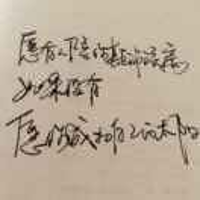 愿有人陪你颠沛流离
如果没有
愿你成为自己的太阳